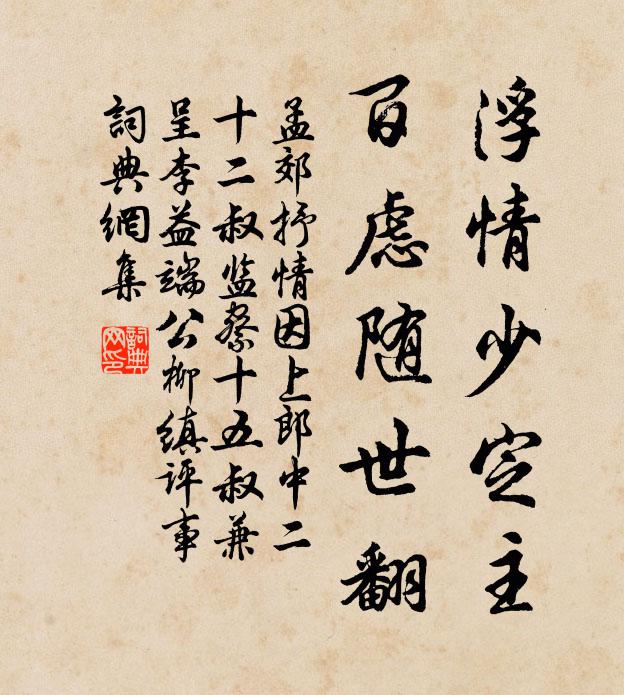 浮情少定主
百虑随世翻
孟郊抒情因上郎中二
十二叔监察十五叔兼
呈李益端公柳縝评事
詞典網集
詞典
网印